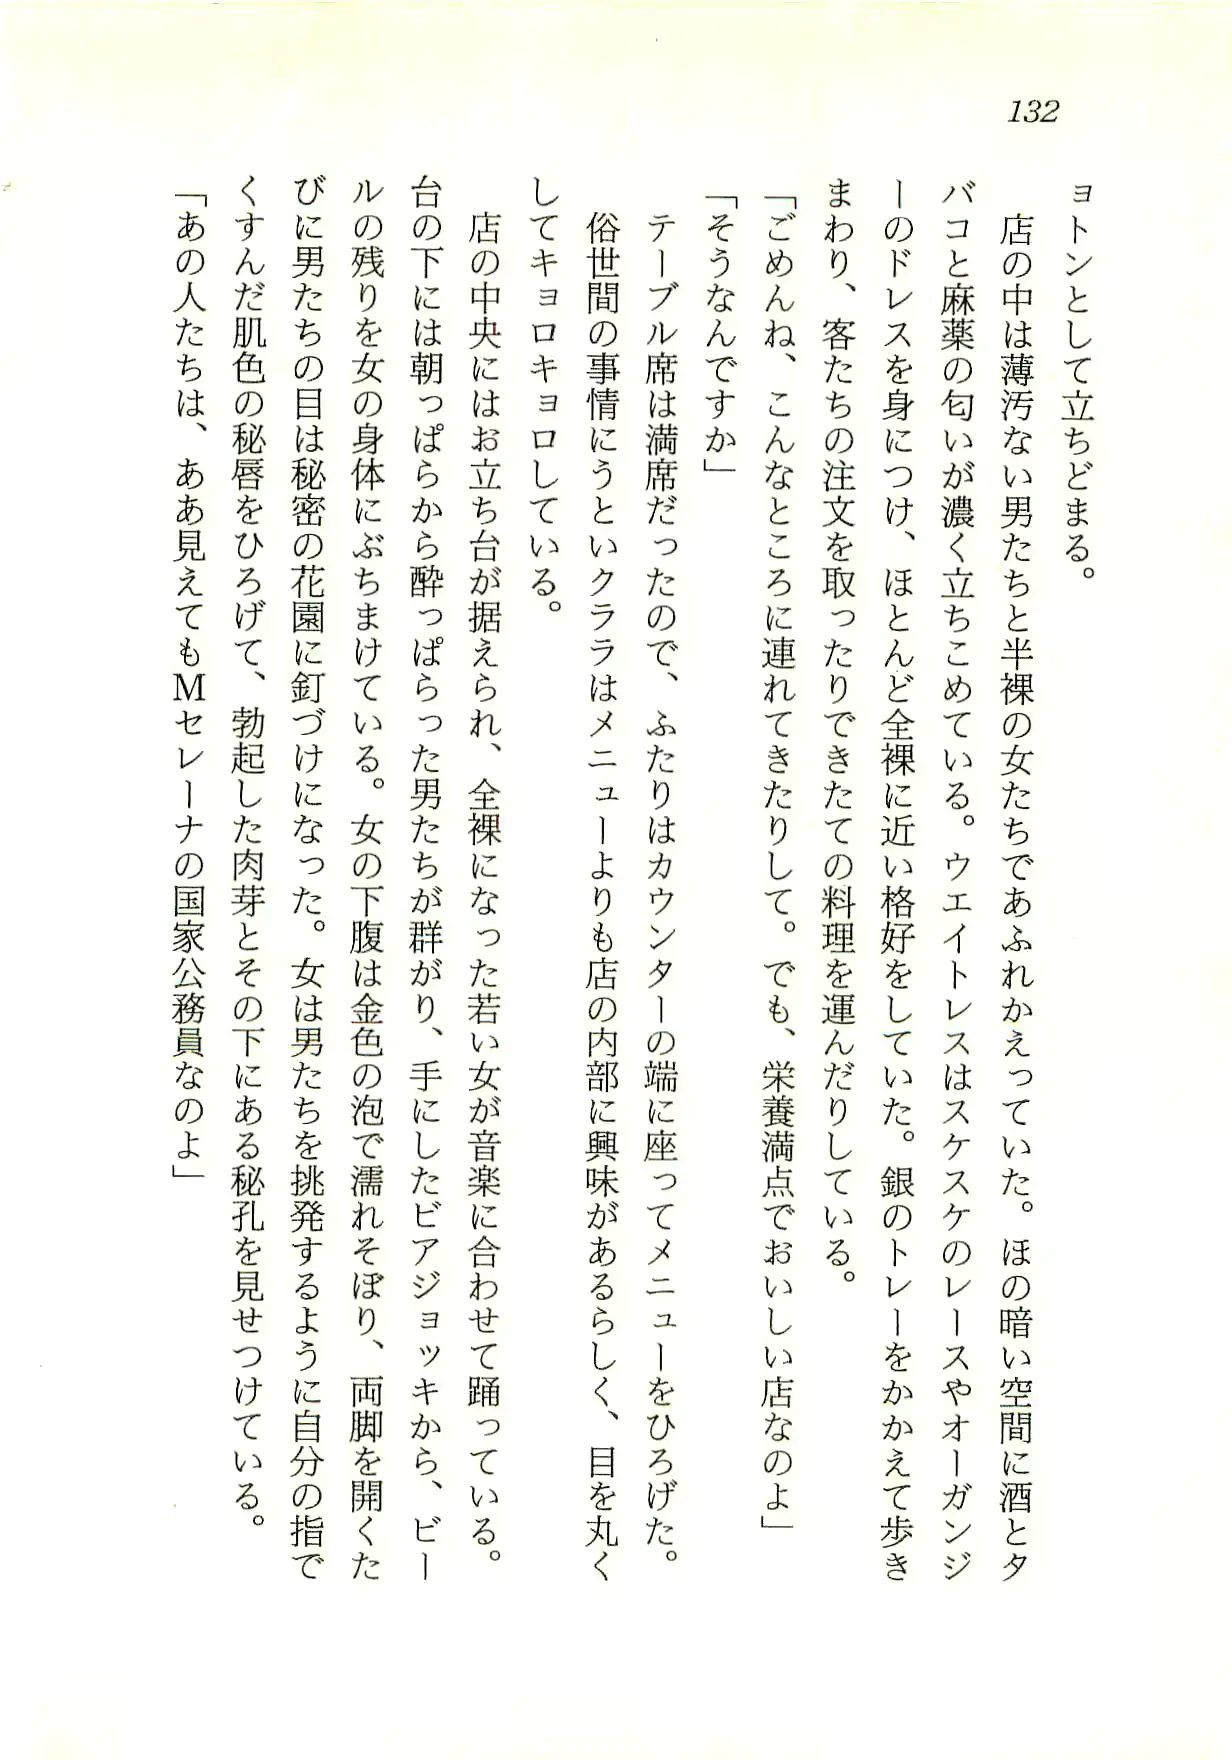 132
ョトンとして立ちどまる。
　店の中は薄汚ない男たちと半裸の女たちであふれかえっていた。ほの暗い空間に酒とタ
バコと麻薬の匂いが濃く立ちこめている。ウエイトレスはスケスケのレースやオーガンジ
ーのドレスを身につけ、ほとんど全裸に近い格好をしていた。銀のトレーをかかえて歩き
まわり、客たちの注文を取ったりできたての料理を運んだりしている。
「ごめんね、こんなところに連れてきたりして。でも、栄養満点でおいしい店なのよ」
「そうなんですか」
　テーブル席は満席だったので、ふたりはカウンターの端に座ってメニューをひろげた。
　俗世間の事情にうといクララはメニューよりも店の内部に興味があるらしく、目を丸く
してキョロキョロしている。
　店の中央にはお立ち台が据えられ、全裸になった若い女が音楽に合わせて踊っている。
台の下には朝っぱらから酔っぱらった男たちが群がり、手にしたビアジョッキから、ビー
ルの残りを女の身体にぶちまけている。女の下腹は金色の泡で濡れそぼり、両脚を開くた
びに男たちの目は秘密の花園に釘づけになった。女は男たちを挑発するように自分の指で
くすんだ肌色の秘唇をひろげて、勃起した肉芽とその下にある秘孔を見せつけている。
「あの人たちは、ああ見えてもＭセレーナの国家公務員なのよ」